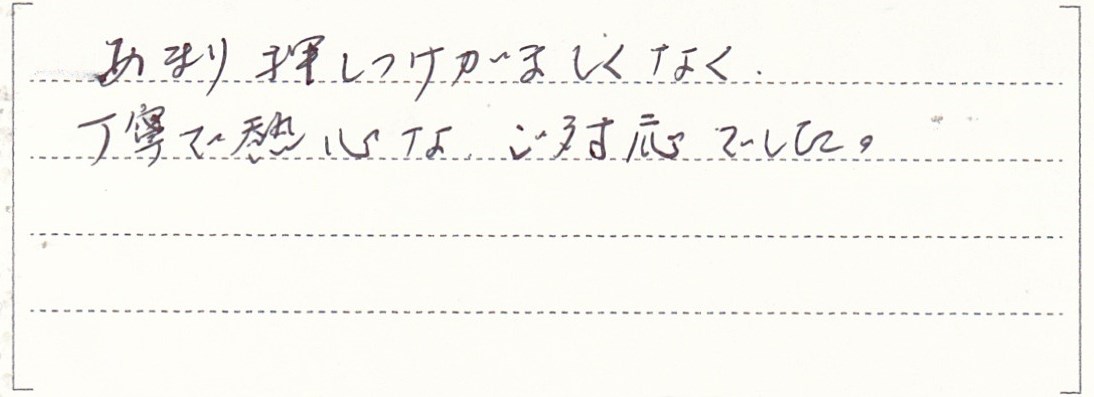 あまり押しつけがましくなく、
丁寧で熱心な、ご対応でした。